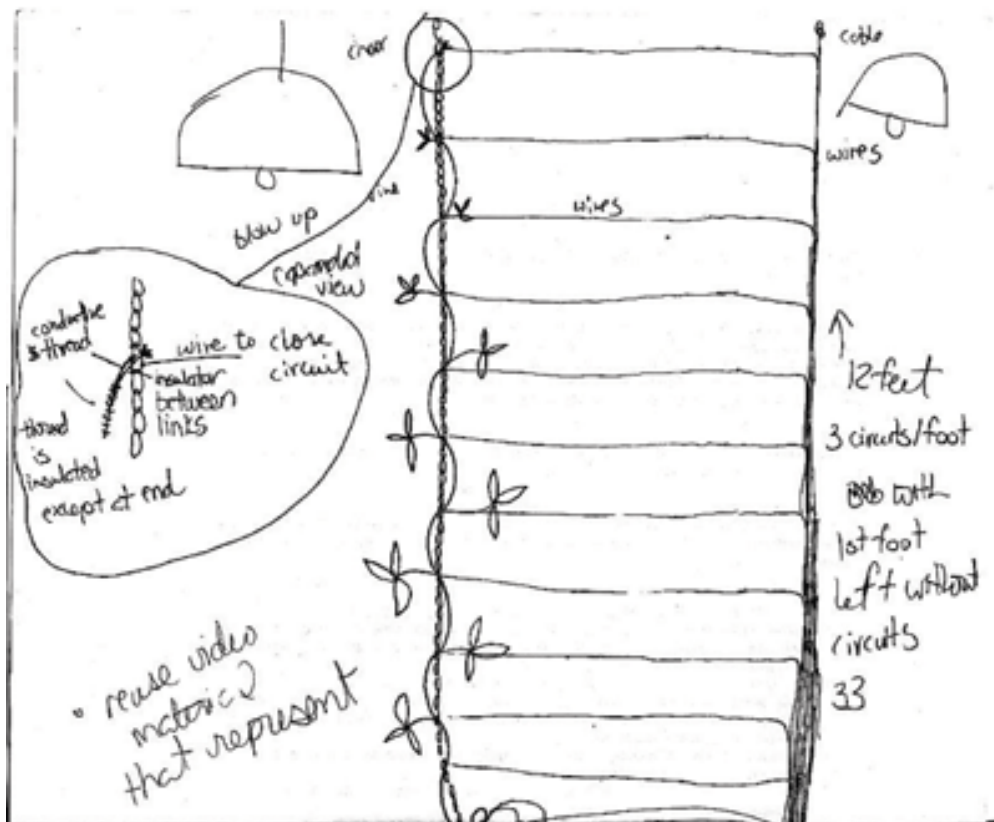 cable
wires
wires
vine
blow up
expanded
view
conductive
thread
wire to close
circuit
insulator
between
links
thread
is
insulated
except at end
12 feet
3 circuits/foot
with
1st foot
left without
circuits
33
• reuse video
material
that represent